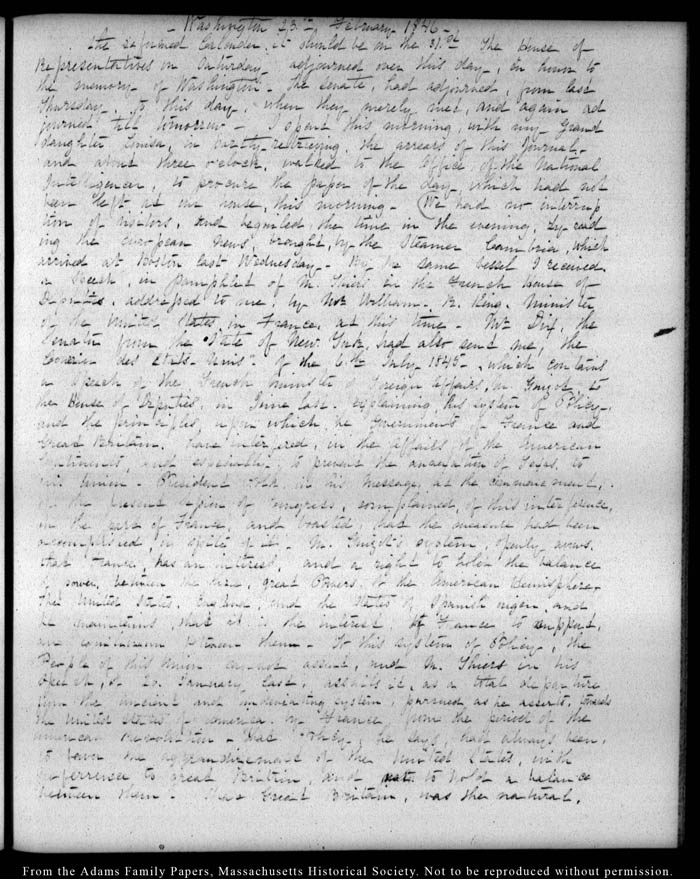 Washington 23. February 1846.
the reformed Calender, it should be on the 31.st The House of
Representatives on Saturday adjourned over this day, in honor to
the memory of Washington. The Senate, had adjourned, from last
Thursday, to this day, when they merely met, and again ad
journed till tomorrow. I spent this morning, with my Grand
daughter Louisa, in partly retrieving, the arrears of this Journal,
and about three o'clock, walked to the Office, of the National
Intelligencer, to procure the paper of the day, which had not
been left at our house, this morning. We had no interrup
tion of visitors, and beguiled, the time in the evening, by read
ing the european News, brought, by the Steamer Cambria, which
arrived at Boston last Wednesday. By the same vessel I received
a Speech, in pamphlet of M. Thiers in the French House of
Deputies, addressed to me, by Mr. William. R. King, Minister
of the United States in France, at this time. Mr. Dix, the
Senator from the State of New York, had also sent me, the
Courrier des Etats-Unis. of the 6.th July 1845, which contains
a Speech of the French Minister of Foreign Affairs, M. Guizot, to
the House of Deputies, in June last, explaining his system of Policy,
and the principles, upon which the Governments of France and
Great Britain. have interfered, in the affairs of the American
Continents, and especially, to prevent the annexation of Texas, to
this Union. President Polk in his message, at the commencement,
of the present session of Congress, complained, of this interference,
on the part of France, and boasted, that the measure had been
accomplished, in spite of it. M. Guizot's system, openly avows.
that France, has an interest, and a right to hold the balance
of power, between the three, great Powers, of the American Hemisphere,
The United States, England, and the States of Spanish origin, and
he maintains, that it is the interest, of France to support,
an equilibrium between them. To this system of Policy, the
People of this Union cannot assent, and M. Thiers in his
Speech, of 20. January last, assails it, as a total departure
from the ancient and undeviating system, pursued as he asserts, towards
the United States of America. by France, from the period of the
American revolution. That Policy, he says, had always been,
to favor the aggrandizement of the United States, in the
preference to great Britain, and not to hold a balance
between them. That Great Britain, was the natural,
From the Adams Family Papers, Massachusetts Historical Society. Not to be reproduced without permission.